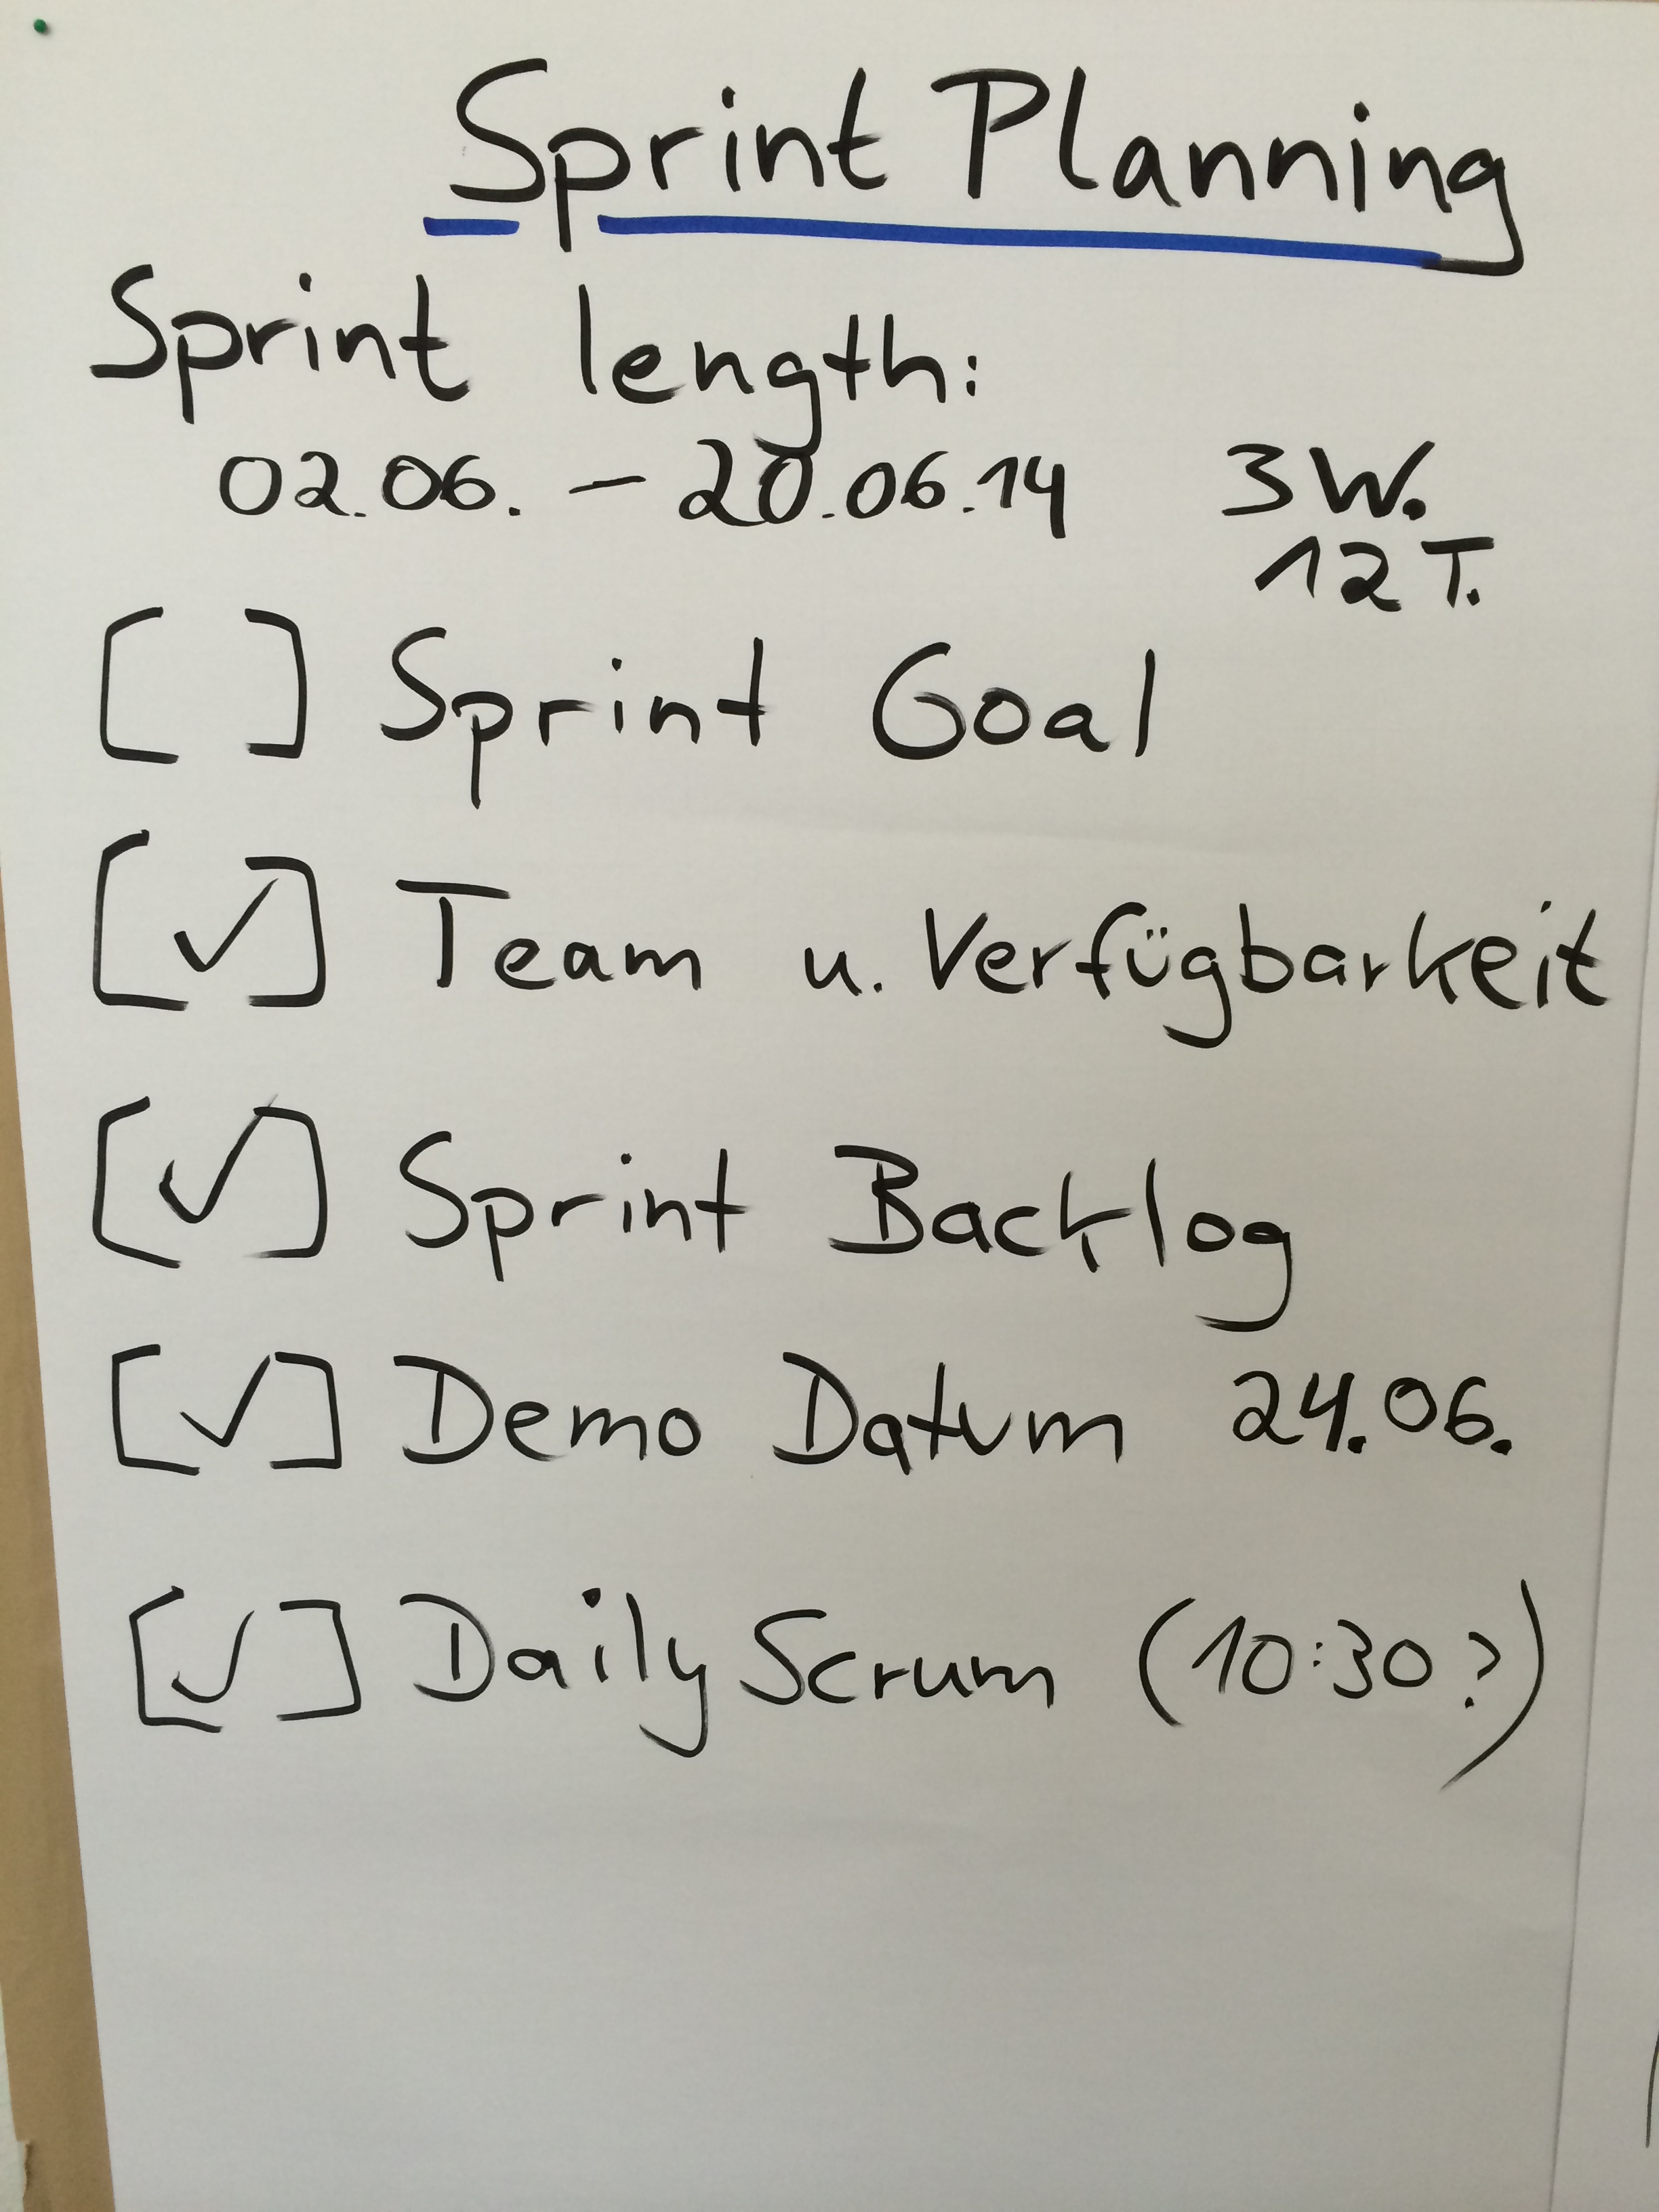 Sprint Planning
Sprint length:
02.06. – 20.06.14 3 W.
12 T.
[ ] Sprint Goal
[✓] Team u. Verfügbarkeit
[✓] Sprint Backlog
[✓] Demo Datum 24.06.
[✓] Daily Scrum (10:30?)